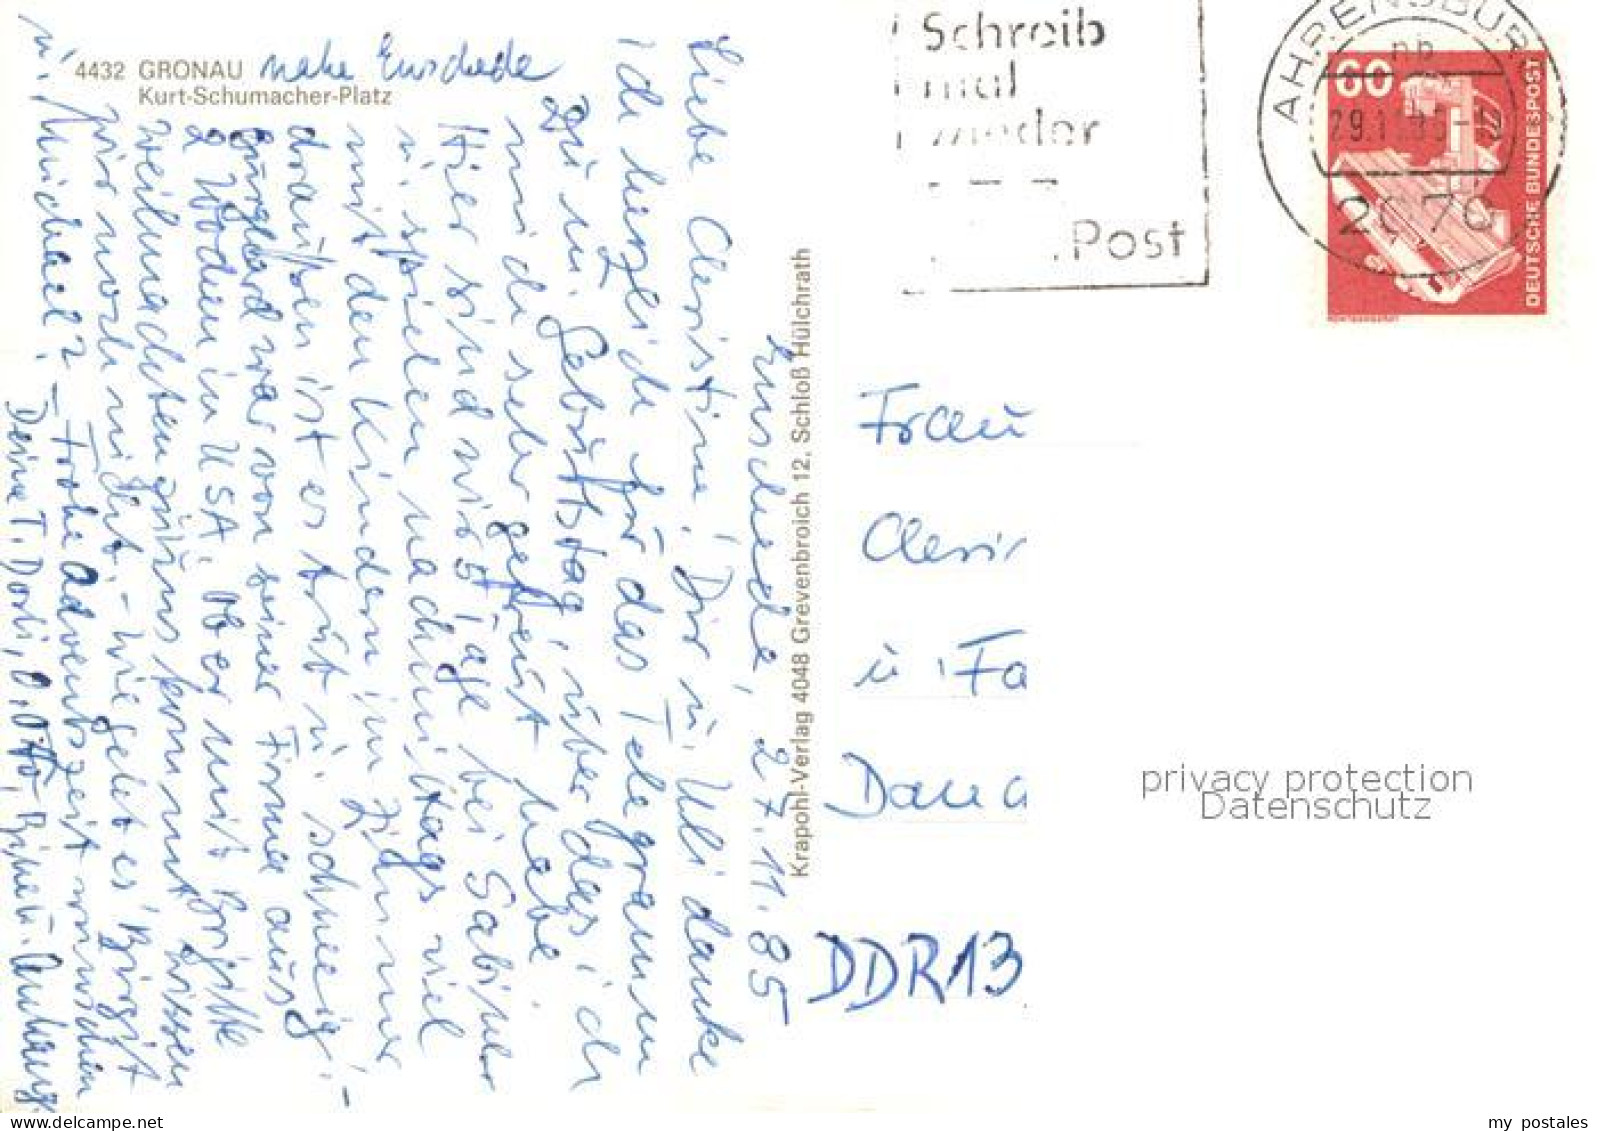 4432 GRONAU nahe Enschede
Kurt-Schumacher-Platz
Enschede, 27.11.85
Liebe Christine! Dir u. Uli danke
ich herzlich für das Telegramm
zu m. Geburtstag, über das ich
mich sehr gefreut habe.
Hier sind wir 5 Tage bei Sabine
u. spielen nachmittags viel
mit den Kindern im Zimmer
draußen ist es trüb u. schneeig! -
war von seiner Firma aus
2 Wochen in USA. Ob er mit Brigitte
weihnachten zu uns kommt wissen
wir noch nicht. - Wie geht es Birgit
u. Michael? - Frohe Adventszeit wünschen
Deine T. Dorli, O. Otto,
Krapohl-Verlag 4048 Grevenbroich 12, Schloß Hülchrath
Schreib
mal
wieder
Post
AHRENSBURG
nb
29.1
2070
60
DEUTSCHE BUNDESPOST
Frau
Chris
u. Fa
DDR 13
privacy protection
Datenschutz
my postales